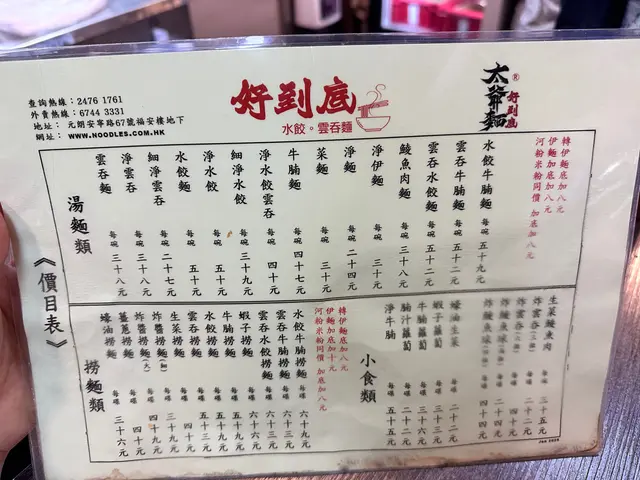 查詢熱線：2476 1761
外賣熱線：6744 3331
地址： 元朗安寧路67號福安樓地下
網址： WWW.NOODLES.COM.HK
好到底
水餃。雲吞麵
太爺麵®
好到底
《價目表》
湯麵類
雲吞麵 每碗 三十八元
淨雲吞 每碗 三十八元
細淨雲吞 每碗 二十七元
水餃麵 每碗 五十元
淨水餃 每碗 五十元
細淨水餃 每碗 三十九元
淨水餃雲吞 每碗 四十元
牛腩麵 每碗 四十七元
菜麵 每碗 三十元
淨麵 每碗 二十四元
淨伊麵 每碗 三十元
鯪魚肉麵 每碗 三十八元
雲吞水餃麵 每碗 五十二元
雲吞牛腩麵 每碗 五十二元
水餃牛腩麵 每碗 五十九元
河粉米粉同價 加底加八元
伊麵加八元 加底加八元
轉伊麵底加八元
撈麵類
蠔油撈麵 每碟 三十六元
薑蔥撈麵 每碟 四十元
炸醬撈麵(大) 每碟 四十九元
炸醬撈麵(細) 每碟 三十九元
生菜撈麵 每碟 四十元
雲吞撈麵 每碟
水餃撈麵 每碟
牛腩撈麵 每碟
蝦子撈麵 每碟
雲吞水餃撈麵 每碟 六十三元
雲吞牛腩撈麵 每碟 六十三元
水餃牛腩撈麵 每碟 六十九元
河粉米粉同價 加底加八元
伊麵加十元 加底加八元
轉伊麵底加八元
小食類
淨牛腩 每碟 五十五元
腩汁蘿蔔 每碟 二十元
牛腩蘿蔔 每碟 三十三元
蝦子蘿蔔 每碟
蠔油生菜 每碟 二十二元
炸鯪魚球 每碟 四十四元
炸鯪魚球 每碟
炸雲吞 每碟 四十元
炸雲吞 每碟
生菜鯪魚肉 每碟 三十五元